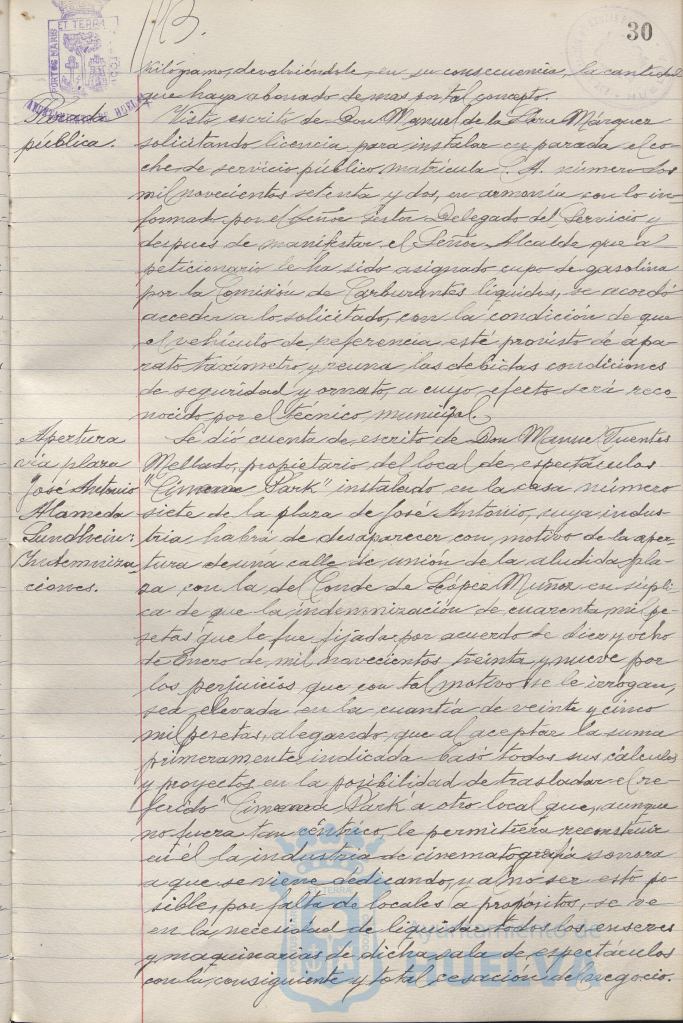 30
kilógramo, devolviéndole, en su consecuencia, la cantidad
que haya abonado de mas por tal concepto.
Parada
pública.
Visto escrito de Don Manuel de la Corte Márquez
solicitando licencia para instalar en parada el co-
che de servicio público matrícula C. A. número dos
mil novecientos setenta y dos, en armonía con lo in-
formado por el Señor Gestor Delegado del Servicio y
después de manifestar el Señor Alcalde que al
peticionario le ha sido asignado cupo de gasolina
por la Comisión de Carburantes líquidos, se acordó
acceder a lo solicitado, con la condición de que
el vehículo de referencia esté provisto de apa-
rato taxímetro y reuna las debidas condiciones
de seguridad y ornato, a cuyo efecto será reco-
nocido por el técnico municipal.
Apertura
via plaza
"José Antonio
Alameda
Sundheim:
Indemniza-
ciones.
Se dió cuenta de escrito de Don Manuel Fuentes
Mellado, propietario del local de espectáculos
"Cinema Park" instalado en la casa número
siete de la plaza de José Antonio, cuya indus-
tria habrá de desaparecer con motivo de la aper-
tura de una calle de unión de la aludida pla-
za con la del Conde de López Muñoz en súpli-
ca de que la indemnización de cuarenta mil pe-
setas que le fue fijada por acuerdo de diez y ocho
de Enero de mil novecientos treinta y nueve por
los perjuicios que con tal motivo se le irrogan,
sea elevada en la cuantía de veinte y cinco
mil pesetas, alegando, que al aceptar la suma
primeramente indicada basó todos sus cálculos
y proyectos en la posibilidad de trasladar el re-
ferido "Cinema Park a otro local que, aunque
no fuera tan céntrico, le permitiera reconstruir
en él la industria de cinematografía sonora
a que se viene dedicando, y al no ser esto po-
sible, por falta de locales a propósitos, se ve
en la necesidad de liquidar todos los enseres
y maquinarias de dicha sala de espectáculos
con la consiguiente y total cesación de negocio.
Ayuntamiento de
HUELVA